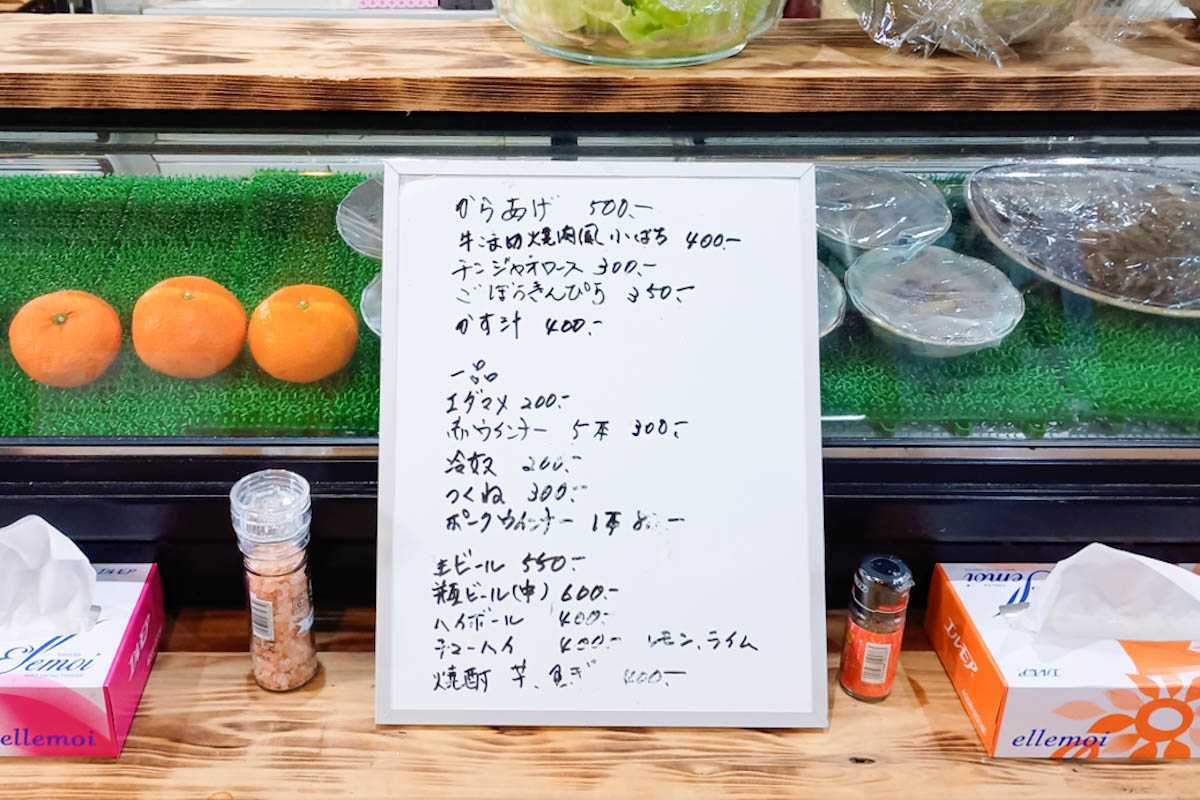 からあげ 500.-
牛こま切焼肉風小ばち 400.-
チンジャオロース 300.-
ごぼうきんぴら 350.-
かす汁 400.-
一品
エダマメ 200.-
赤ウインナー 5本 300.-
冷奴 200.-
つくね 300.-
ポークウインナー 1本
生ビール 550.-
瓶ビール(中) 600.-
ハイボール 400.-
チューハイ 400.- レモン、ライム
焼酎 芋、麦 400.-
Ellemoi
エルモア
ellemoi
エルモア
エルモア
ellemoi